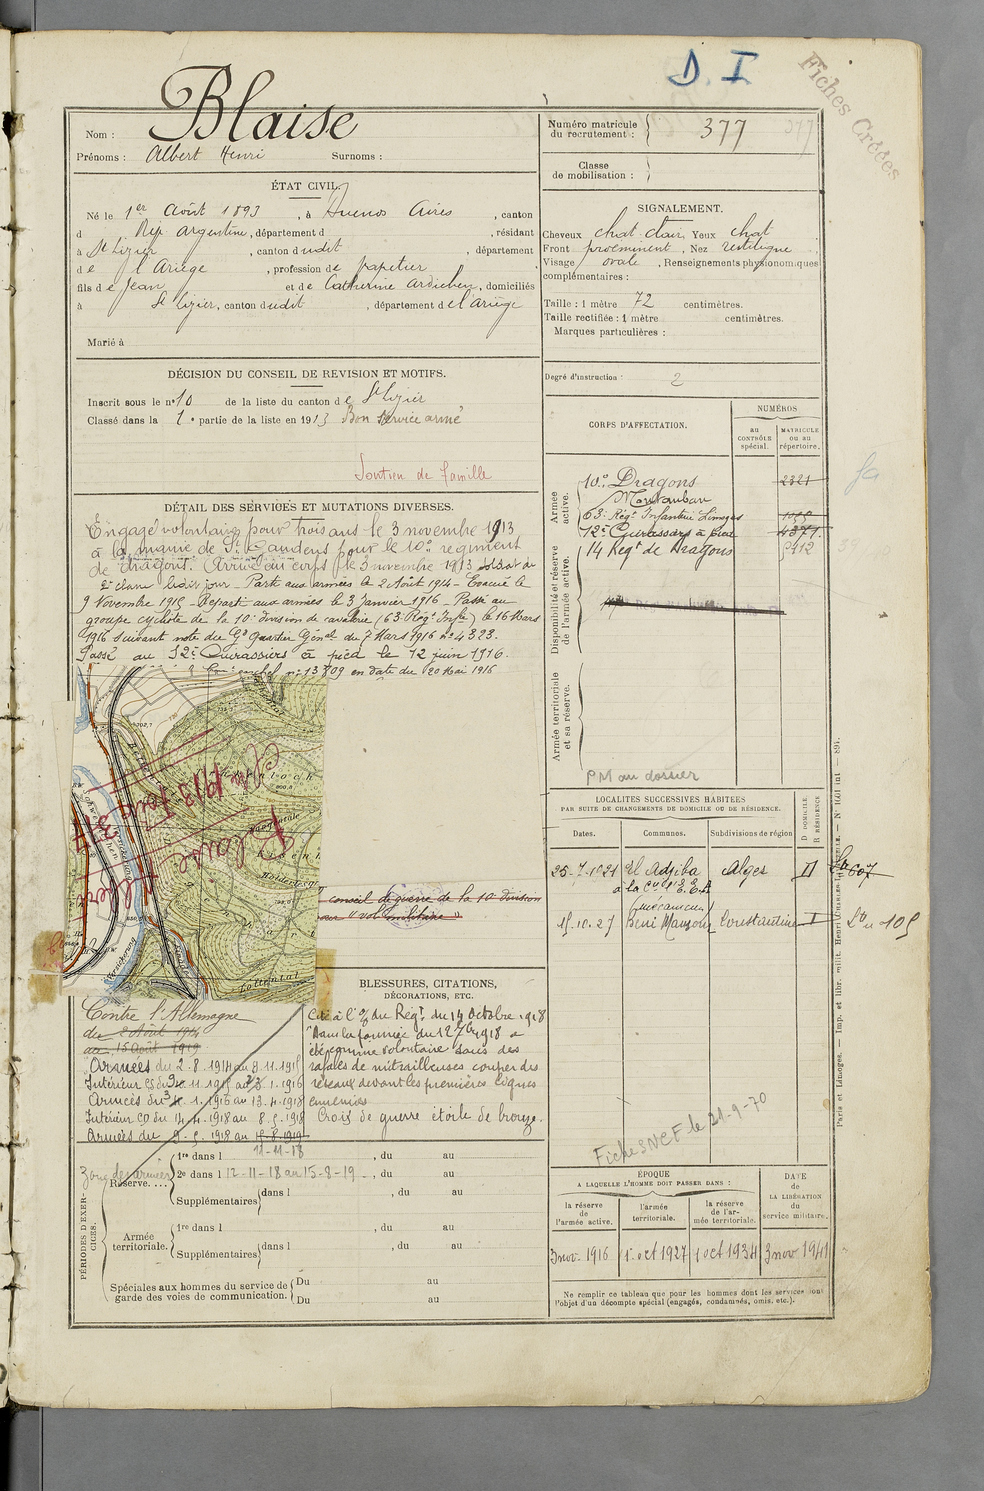 D. I
Fiches Créées
Nom : Blaise
Prénoms : Albert Henri Surnoms :
Numéro matricule du recrutement : 377
377
Classe de mobilisation :
ÉTAT CIVIL.
Né le 1er Août 1893, à Buenos Aires, canton
d Rép. Argentine, département d , résidant
à St Lizier, canton dudit, département
de l'Ariège, profession de papetier
fils de Jean et de Catherine Ardichen, domiciliés
à St Lizier, canton dudit, département de l'Ariège
Marié à
SIGNALEMENT.
Cheveux chat. clair, Yeux chat
Front proéminent, Nez rectiligne
Visage ovale, Renseignements physionomiques
complémentaires :
Taille : 1 mètre 72 centimètres.
Taille rectifiée : 1 mètre centimètres.
Marques particulières :
Degré d'instruction : 2
DÉCISION DU CONSEIL DE REVISION ET MOTIFS.
Inscrit sous le n° 10 de la liste du canton de St Lizier
Classé dans la 1e partie de la liste en 1913 Bon Service armé
Soutien de famille
DÉTAIL DES SERVICES ET MUTATIONS DIVERSES.
Engagé volontaire pour trois ans le 3 novembre 1913
à la mairie de St Gaudens pour le 10e régiment
de dragons. Arrivé au corps le 3 novembre 1913 soldat de
2e classe ledit jour - Parti aux armées le 2 Août 1914 - Evacué le
9 Novembre 1915 - Départ aux armées le 3 Janvier 1916 - Passé au
groupe cycliste de la 10e division de cavalerie (63e Régt Infie) le 16 Mars
1916 suivant note du Gd Quartier Génal du 7 Mars 1916 n° 4323.
Passé au 12e Cuirassiers à pied le 12 juin 1916.
n° 13809 en date du 20 Mai 1916
conseil de guerre de la 10e division
pour "vol militaire"
CORPS D'AFFECTATION.
NUMÉROS
au CONTRÔLE spécial.
MATRICULE ou au répertoire.
Armée active.
10e Dragons 2321
Montauban
63e Régt Infanterie Limoges
12e Cuirassiers à pied 4371
14 Regt de Dragons 5412
Disponibilité et réserve de l'armée active.
Armée territoriale et sa réserve.
PM au dossier
LOCALITÉS SUCCESSIVES HABITÉES
PAR SUITE DE CHANGEMENTS DE DOMICILE OU DE RÉSIDENCE.
Dates. Communes. Subdivisions de région D DOMICILE R RÉSIDENCE
25-7-1921 El Adjiba Alger
(mécanicien)
15.10.27 Beni Mansour Constantine
Fiche SNCF le 21-9-70
Contre l'Allemagne
du 2 Août 1914
au 15 Août 1919
Armées du 2.8.1914 au 9.11.1915
Intérieur CS du 10.11.1915 au 3.1.1916
Armées du 4.1.1916 au 13.4.1918
Intérieur CD du 14.4.1918 au 8.5.1918
Armées du 9.5.1918 au 15.8.1919
11-11-18
BLESSURES, CITATIONS,
DÉCORATIONS, ETC.
Cité à l'O/ du Régt du 14 Octobre 1918
"Dans la journée du 12 7bre 1918 a
été comme volontaire sous des
rafales de mitrailleuses couper des
réseaux devant les premières lignes
ennemies
Croix de guerre étoile de bronze.
PÉRIODES D'EXERCICES.
zone des armées
Réserve....
1re dans l , du au
2e dans l 12-11-18 au 15-8-19, du au
Supplémentaires dans l , du au
Armée territoriale.
1re dans l , du au
Supplémentaires dans l , du au
Spéciales aux hommes du service de garde des voies de communication.
Du au
Du au
ÉPOQUE
A LAQUELLE L'HOMME DOIT PASSER DANS :
la réserve de l'armée active.
l'armée territoriale.
la réserve de l'armée territoriale.
DATE de LA LIBÉRATION du service militaire.
3 nov. 1916
1er oct 1927
1 oct 1934
3 nov 1941
Ne remplir ce tableau que pour les hommes dont les services font
l'objet d'un décompte spécial (engagés, condamnés, omis, etc.).
Paris et Limoges. — Imp. et libr. milit. Henri CHARLES-LAVAUZELLE.